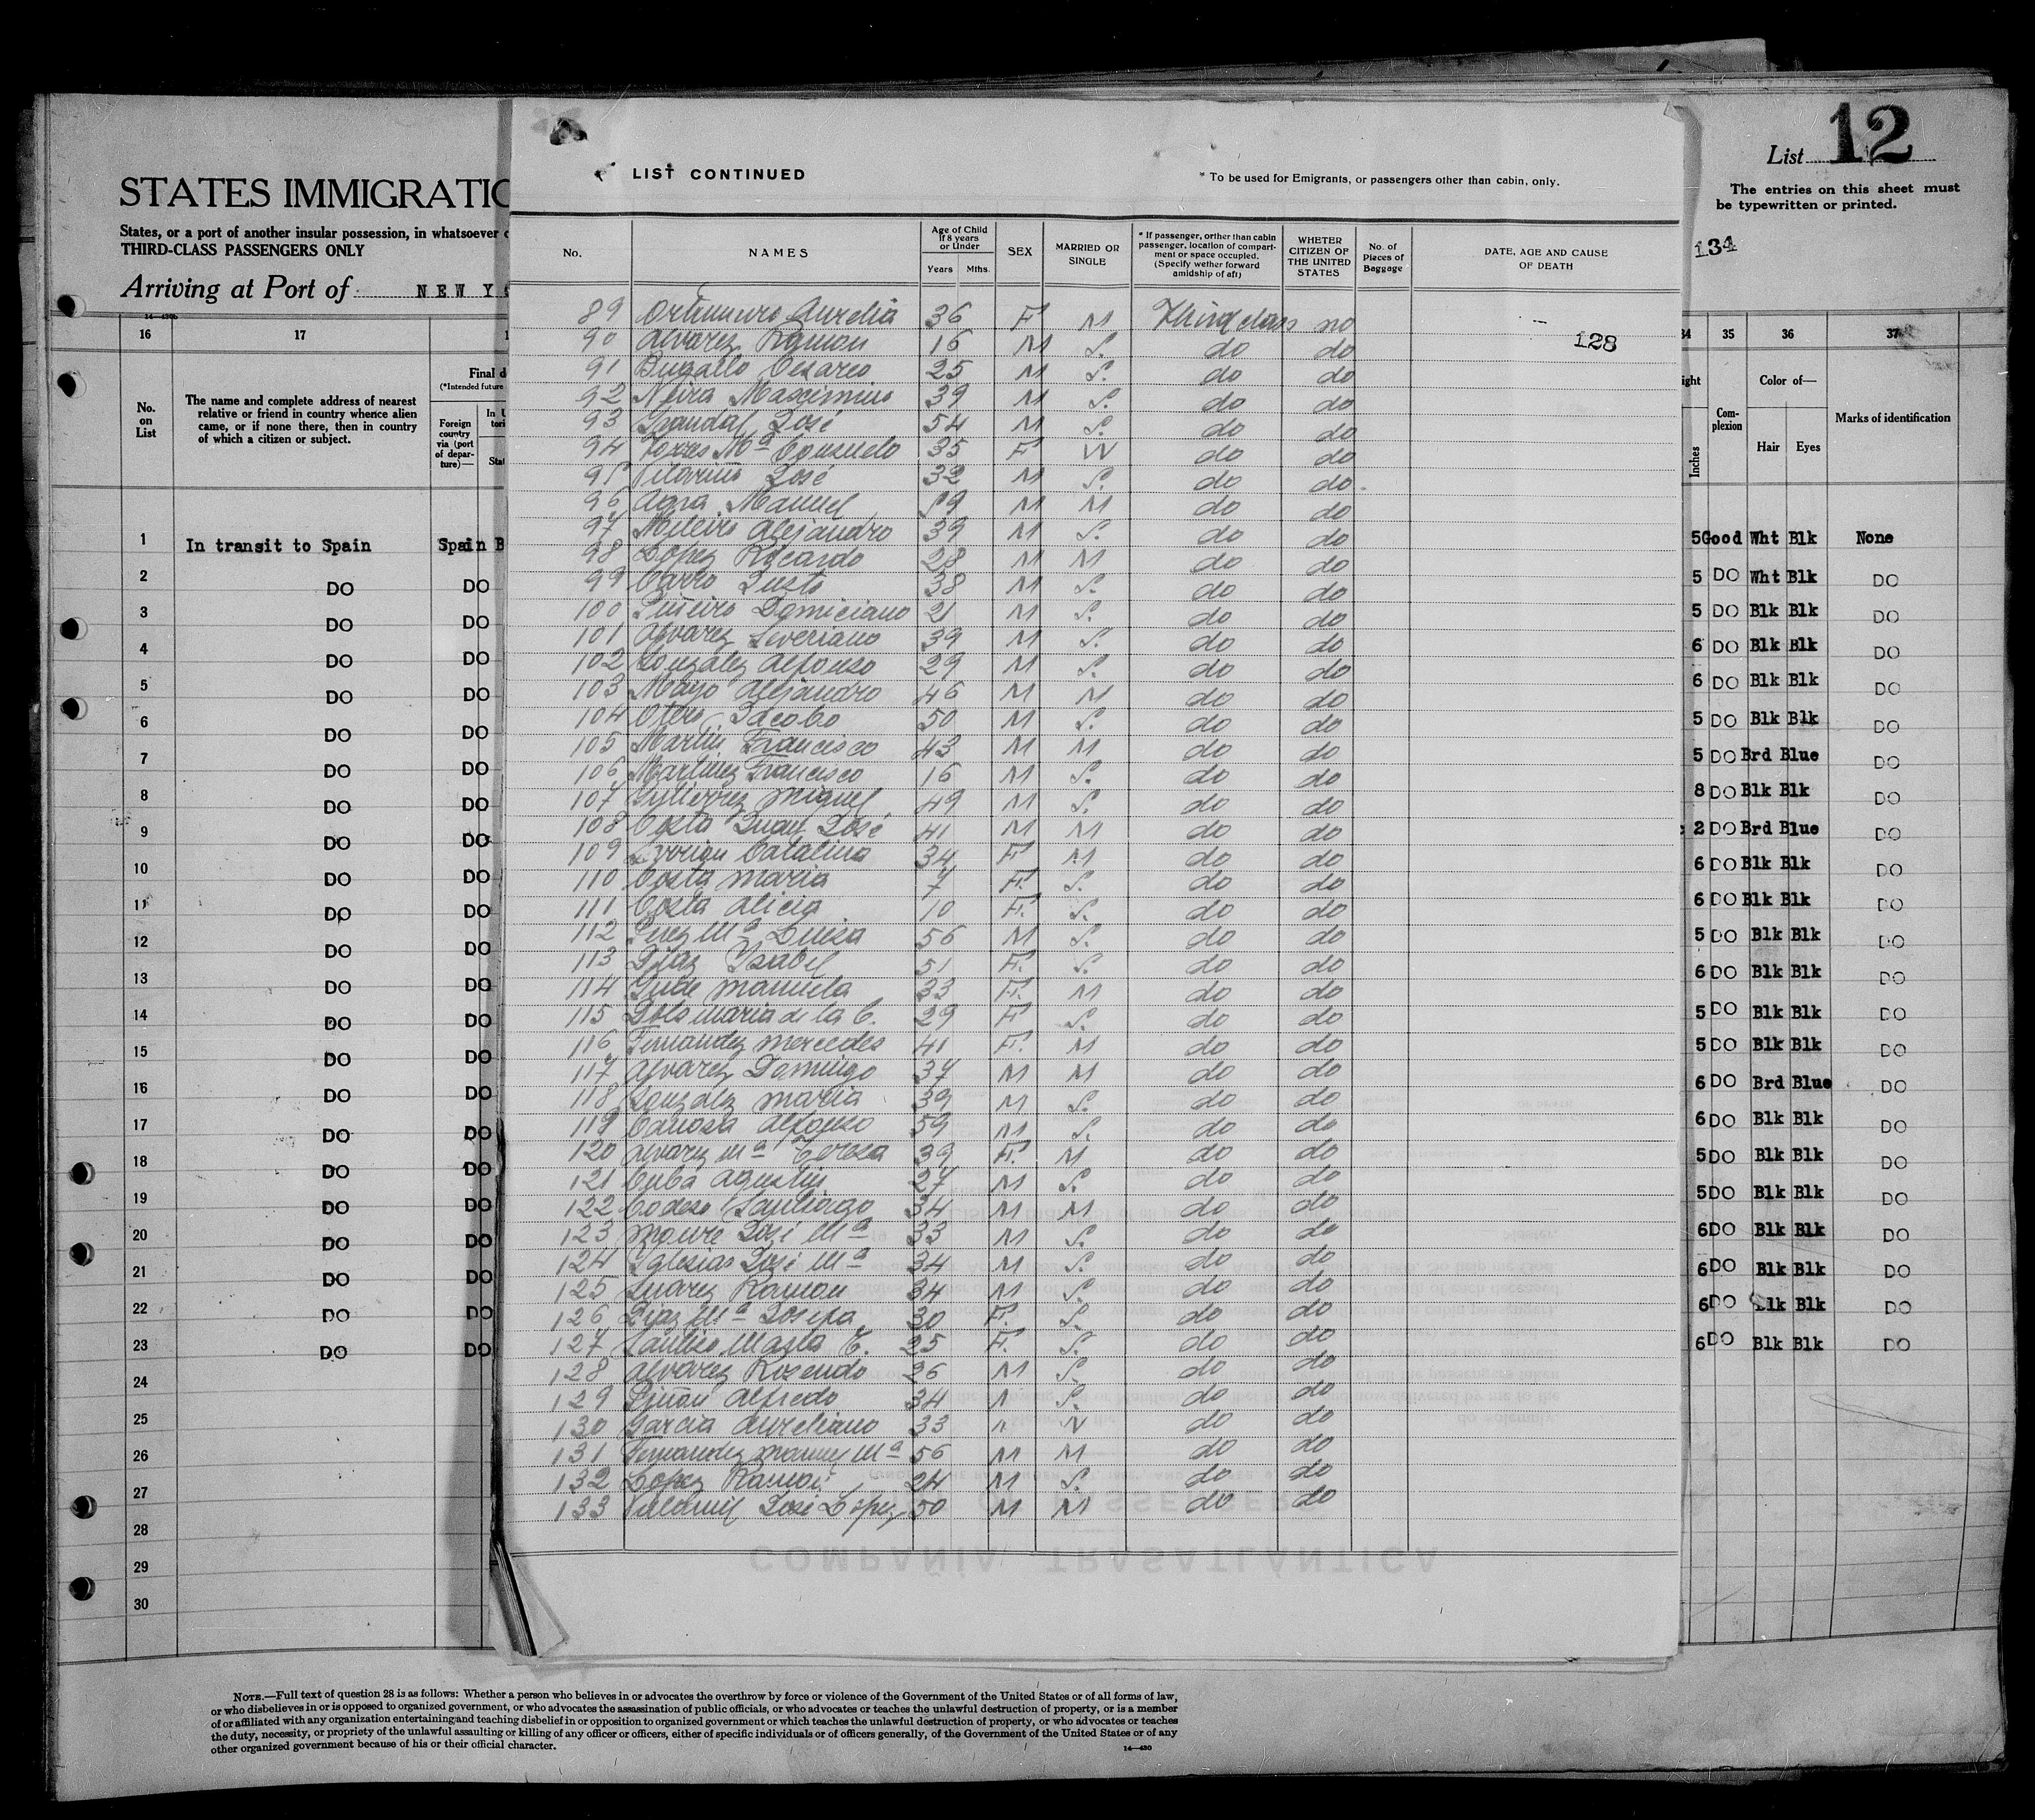 12
List
The entries on this sheet must
be typewritten or printed.
134
STATES IMMIGRATIO
States, or a port of another insular possession, in whatsoever
THIRD-CLASS PASSENGERS ONLY
Arriving at Port of NEW YO
LIST CONTINUED
* To be used for Emigrants, or passengers other than cabin, only.
No. NAMES Age of Child if 8 years or Under Years Mths. SEX MARRIED OR SINGLE * If passenger, orther than cabin passenger, location of compartment or space occupied. (Specify wether forward amidship of aft) WHETER CITIZEN OF THE UNITED STATES No. of Pieces of Baggage DATE, AGE AND CAUSE OF DEATH
89 Aurelia 36 F M Third class no
128
90 Alvarez Ramon 16 M S. do do
91 Bugallo Cesareo 25 M S. do do
92 Neira Maximino 39 M S. do do
93 Grandal José 54 M S. do do
94 Torres Mª Consuelo 35 F W do do
95 Vilariño José 32 M S. do do
96 Agra Manuel 59 M M do do
97 Alejandro 39 M S. do do
98 López Ricardo 28 M M do do
99 Carro Justo 38 M S. do do
100 Piñeiro Domiciano 21 M S. do do
101 Alvarez Severiano 39 M S. do do
102 González Alfonso 29 M S. do do
103 Mayo Alejandro 46 M M do do
104 Otero Jacobo 50 M S. do do
105 Martin Francisco 43 M M do do
106 Martinez Francisco 16 M S. do do
107 Gutierrez Miguel 49 M S. do do
108 Costa Juan José 41 M M do do
109 Catalina 34 F M do do
110 Costa Maria 7 F. S. do do
111 Costa Alicia 10 F. S. do do
112 Perez Mª Luisa 56 M S. do do
113 Diaz Ysabel 51 F. S. do do
114 Manuela 33 F. M do do
115 Maria de la C. 29 F S. do do
116 Fernandez Mercedes 41 F. M do do
117 Alvarez Domingo 37 M M do do
118 Gonzalez Maria 39 M S. do do
119 Alfonso 59 M S. do do
120 Alvarez Mª Teresa 39 F. M do do
121 Cuba Agustin 27 M S. do do
122 Codeso Santiago 34 M M do do
123 Moure José Mª 33 M S. do do
124 Yglesias José Mª 34 M S. do do
125 Suarez Ramon 34 M S. do do
126 Diaz Mª Josefa 30 F. S. do do
127 Maria C. 25 F. S. do do
128 Alvarez Rosendo 26 M S. do do
129 Alfredo 34 S. do do
130 Garcia Aureliano 33 do do
131 Fernandez Manuel Mª 56 M M do do
132 López Ramon 24 M S. do do
133 Villamil José López 50 M M do do
16 17
No. on List
The name and complete address of nearest
relative or friend in country whence alien
came, or if none there, then in country
of which a citizen or subject.
Final d
(*Intended future
Foreign country via (port of departure)—
1 In transit to Spain Spain B
2 DO DO
3 DO DO
4 DO DO
5 DO DO
6 DO DO
7 DO DO
8 DO DO
9 DO DO
10 DO DO
11 DO DO
12 DO DO
13 DO DO
14 DO DO
15 DO DO
16 DO DO
17 DO DO
18 DO DO
19 DO DO
20 DO DO
21 DO DO
22 DO DO
23 DO DO
24
25
26
27
28
29
30
34 35 36 37
ight Inches Complexion Color of— Hair Eyes Marks of identification
5 Good Wht Blk None
5 DO Wht Blk DO
5 DO Blk Blk DO
6 DO Blk Blk DO
6 DO Blk Blk DO
5 DO Blk Blk DO
5 DO Brd Blue DO
8 DO Blk Blk DO
2 DO Brd Blue DO
6 DO Blk Blk DO
6 DO Blk Blk DO
5 DO Blk Blk DO
6 DO Blk Blk DO
5 DO Blk Blk DO
5 DO Blk Blk DO
6 DO Brd Blue DO
6 DO Blk Blk DO
5 DO Blk Blk DO
5 DO Blk Blk DO
6 DO Blk Blk DO
6 DO Blk Blk DO
6 DO Blk Blk DO
6 DO Blk Blk DO
COMPAÑÍA TRASATLÁNTICA
NOTE.—Full text of question 28 is as follows: Whether a person who believes in or advocates the overthrow by force or violence of the Government of the United States or of all forms of law,
or who disbelieves in or is opposed to organized government, or who advocates the assassination of public officials, or who advocates or teaches the unlawful destruction of property, or is a member
of or affiliated with any organization entertaining and teaching disbelief in or opposition to organized government or which teaches the unlawful destruction of property, or who advocates or teaches
the duty, necessity, or propriety of the unlawful assaulting or killing of any officer or officers, either of specific individuals or of officers generally, of the Government of the United States or of any
other organized government because of his or their official character.
14—430